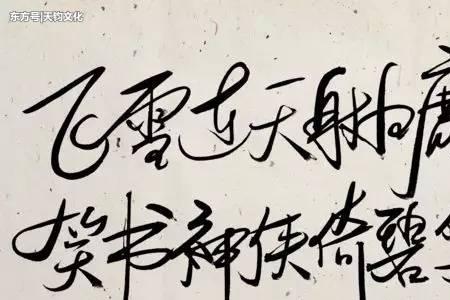 东方号|天钧文化
飞雪连天射白鹿
笑书神侠倚碧